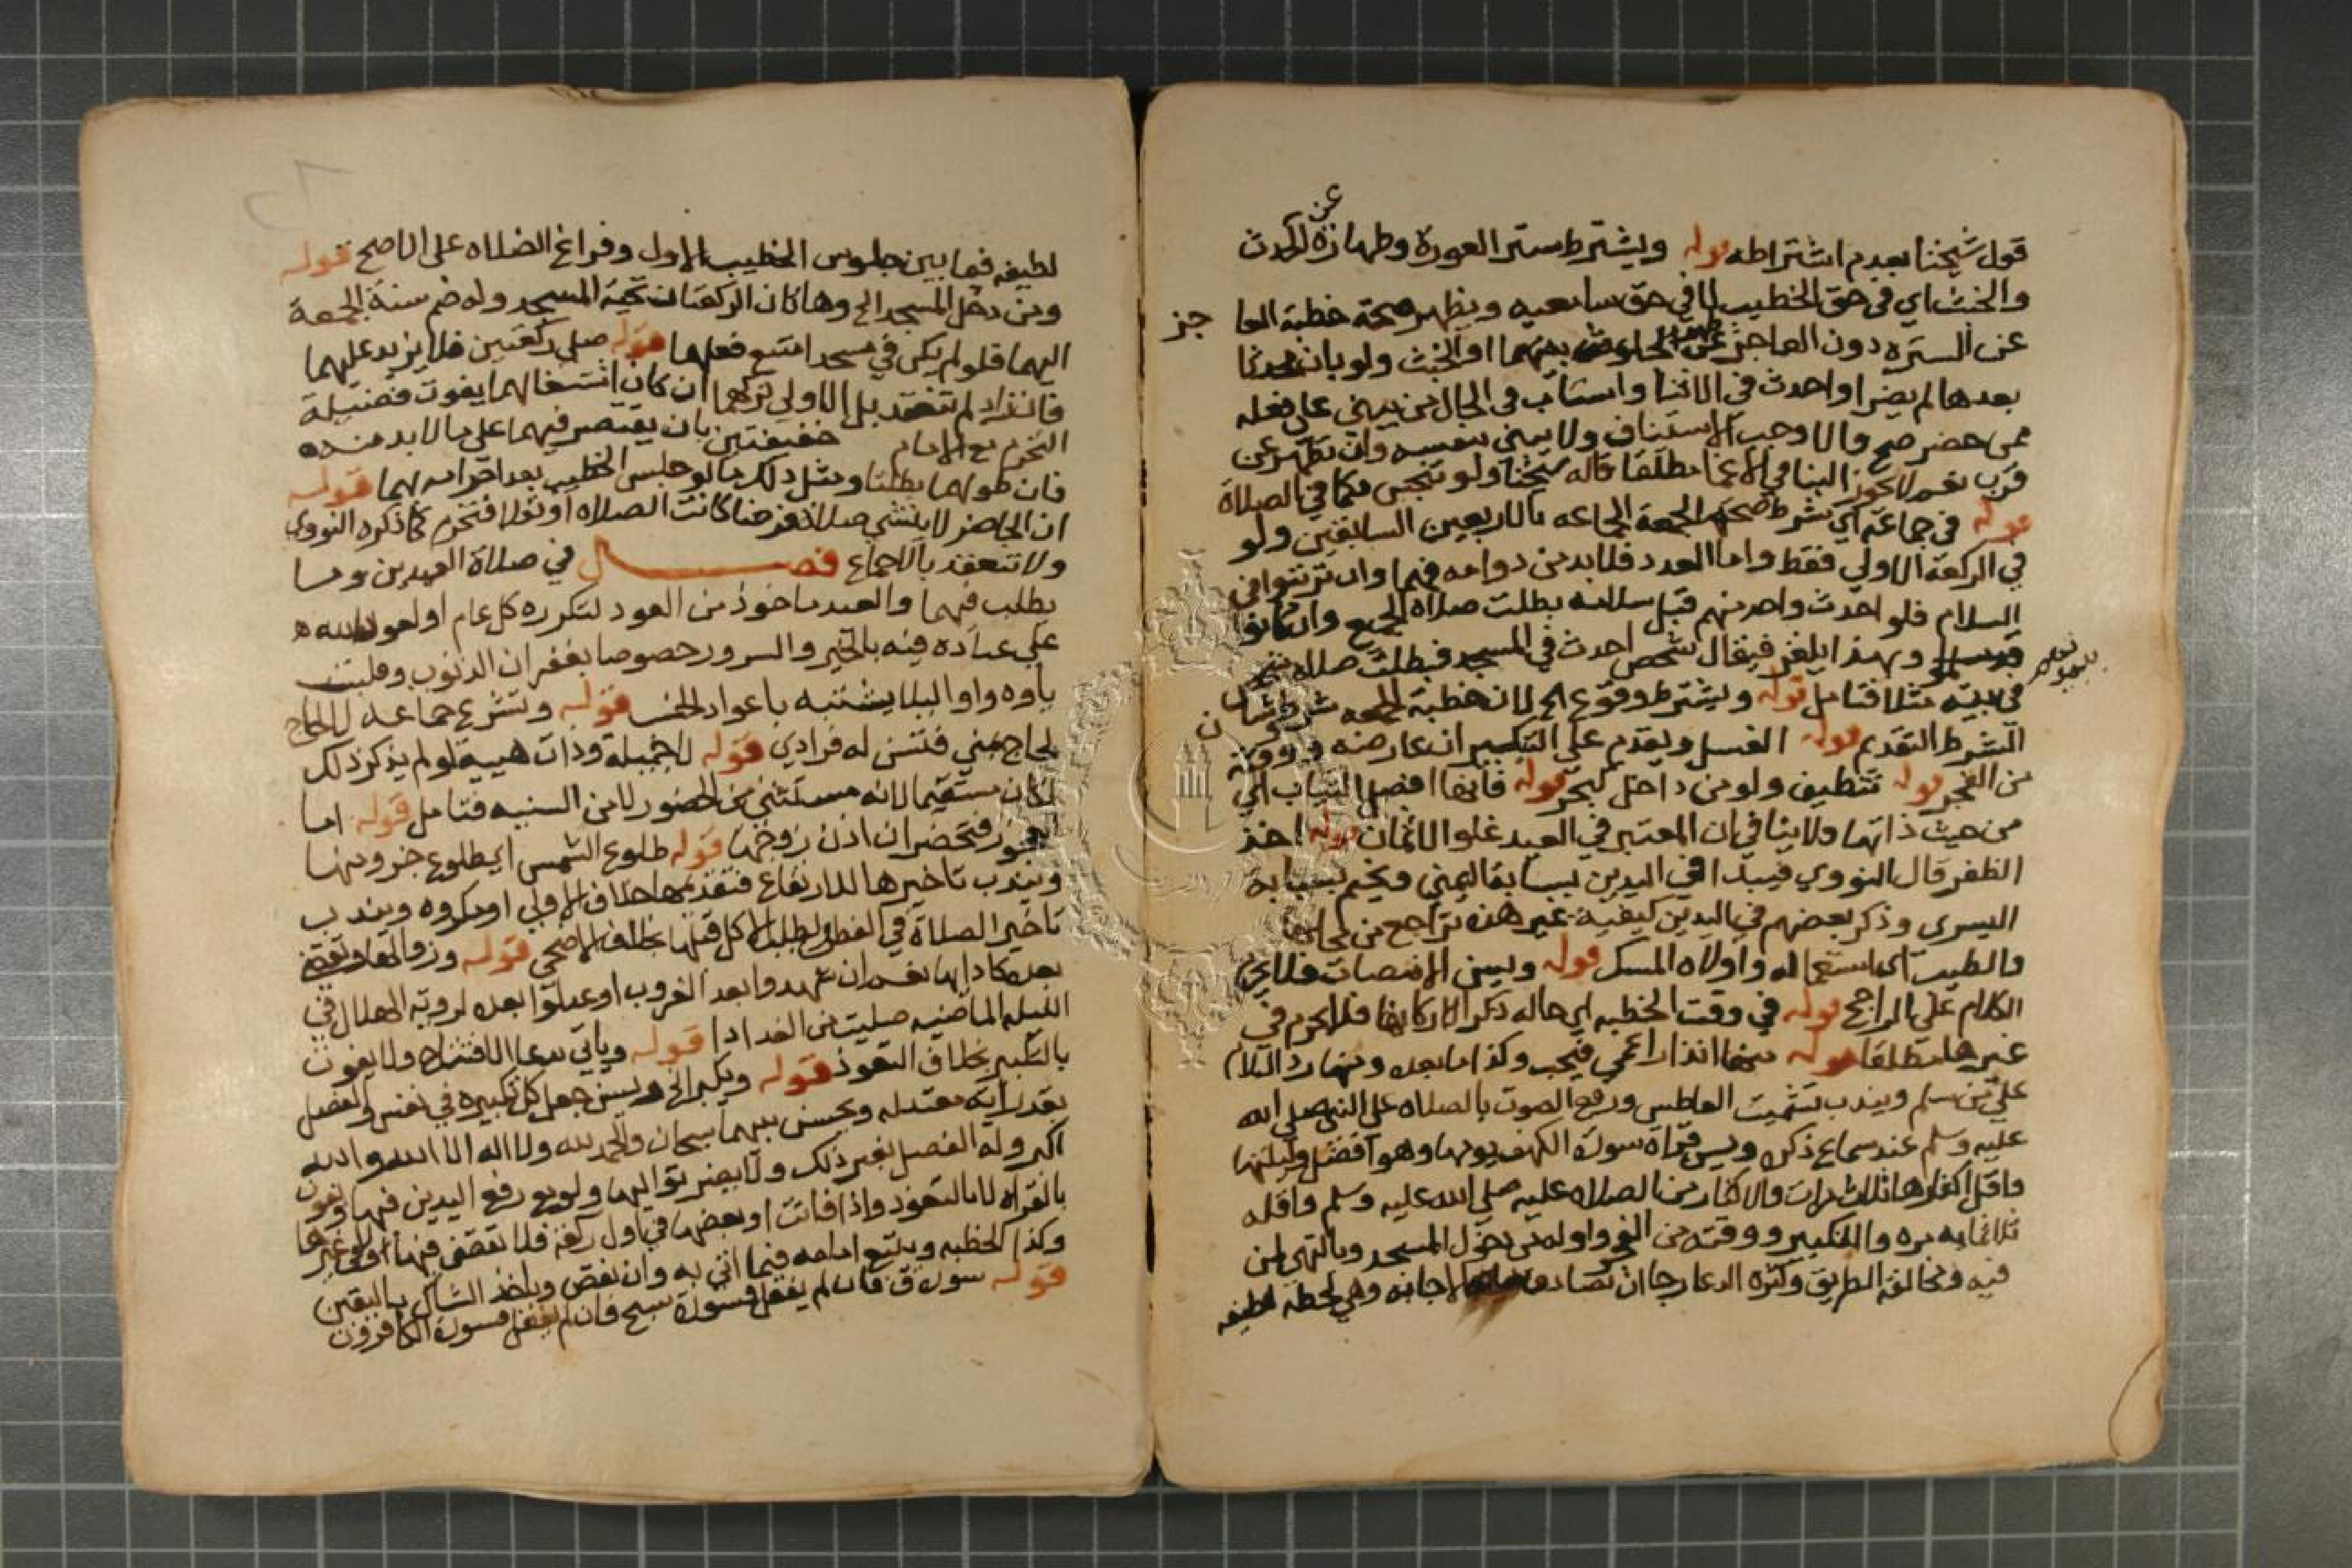 قول شيخنا بعدم اشتراطه قوله ويشترط ستر العورة وطهارة عن الحدث
والخبث اي في حق الخطيب لا في حق سامعيه ويظهر صحة خطبة العا جز
عن السترة دون العاجز عن طهر الحدث او الخبث ولو بان محدثا
بعدها لم يضر او احدث في الاثنا واستناب في الحال من يبني على فعله
ممن حضر صح والا وجب الاستيناف ولا يبني بنفسه وان تطهر عن
قرب نعم لا يجوز البنا في الاغما مطلقا قاله شيخنا ولو تنجس فكما في الصلاة
قوله في جماعة اي بشرط صحة الجمعة الجماعه بالاربعين السابقين ولو
في الركعة الاولي فقط واما العدد فلا بد من دوامه فيها وان ترتبوا في
السلام فلو احدث واحد منهم قبل سلامه بطلت صلاة الجميع وان كانوا
وبهذا يلغز فيقال شخص احدث في المسجد فبطلت صلاة
في بيته مثلا فتامل قوله ويشترط وقوع الخ لان خطبة الجمعه شرط
الشرط التقدم قوله الغسل ويقدم علي التبكير ان عارضه ووقته
من الفجر قوله تنظيف ولو من داخل كبخر قوله فانها افضل الثياب اي
من حيث ذاتها ولا ينافي ان المعتبر في العيد غلو الاثمان قوله اخذ
الظفر قال النووي فيبدا في اليدين بسبابة اليمني ويختم بسبابة
اليسري وذكر بعضهم في اليدين كيفية غير هذه تراجع من محلها
والطيب اي استعماله واولاه المسك قوله ويسن الانصات فلا يحرم
الكلام علي الراجح قوله في وقت الخطبه اي حاله ذكر اركانها فلا يحرم في
غيرها مطلقا قوله منها انذار اعمي فيجب وكذا ما بعده ومنها رد السلام
علي من سلم ويندب تشميت العاطس ورفع الصوت بالصلاه علي النبي صلي الله
عليه وسلم عند سماع ذكره ويسن قراة سورة الكهف يومها وهو افضل وليلتها
واقل اكثارها ثلاث مرات والاكثار من الصلاه عليه صلي الله عليه وسلم واقله
ثلاثمايه مره والتبكير ووقته من الفجر واوله من دخول المسجد وبالتهي لمن
فيه ومخالفة الطريق وكثرة الدعا رجا ان تصادف ساعة الاجابه وهي لحظة لطيفه
لطيفه فيما بين جلوس الخطيب الاول وفراغ الصلاه على الاصح قوله
ومن دخل المسجد الخ وهاتان الركعتان تحية المسجد وله ضم سنة الجمعة
اليهما فلو لم يكن في مسجد امتنع فعلهما قوله صلى ركعتين فلا يزيد عليهما
فان زاد لم تنعقد بل الاولي تركهما ان كان اشتغالهما يفوت فضيلة
التحرم مع الامام خفيفتين بان يقتصر فيهما على ما لا بد منه
فان طولهما بطلتا ومثل ذلك ما لو جلس الخطيب بعد احرامه بهما قوله
ان الحاضر لا ينشي صلاة فرضا كانت الصلاه او نفلا فتحرم كما ذكره النووي
ولا تنعقد بالاجماع فصل في صلاة العيدين وما
يطلب فيهما والعيد ماخوذ من العود لتكرره كل عام او لعود الله
على عباده فيه بالخير والسرور خصوصا بغفران الذنوب وقلبت
ياوه واوا ليلا يشتبه باعواد الخشب قوله وتشرع جماعه لا لحاج
لحاج بمني فتسن له فرادي قوله لا جميلة وذات هيبة لو لم يذكر ذلك
لكان مستقيما لانه مستثني من الحضور لا من السنية فتامل قوله اما
العجوز فتحضر ان اذن زوجها قوله طلوع الشمس اي طلوع جزو منها
ويندب تاخيرها للارتفاع فتقديمها خلاف الاولي او مكروه ويندب
تاخير الصلاة في الفطر لطلب الاكل قبلها بخلاف الاضحي قوله وزوالها
بعده كادايها نعم ان شهدوا بعد الغروب او عدلوا بعده لروية الهلال في
الليله الماضيه صليت من الغد ادا قوله وياتي بدعا الافتتاح ولا يفوت
بالتكبير بخلاف التعوذ قوله ويكبر الخ ويسن جعل كل تكبيره في نفس والفصل
بقدر اية معتدله ويحسن بينهما سبحان والحمد لله ولا اله الا الله والله
اكبر وله الفصل بغير ذلك ولا يضر تواليها ولو مع رفع اليدين فيها وتفوت
بالقراة لا بالتعوذ واذا فاتت او بعضها في اول ركعة فلا تقضي فيها ولا في غيرها
وكذا الخطبه ويتبع امامه فيما اتي به وان نقص وياخذ الشاك باليقين
قوله سورة ق فان لم يفعل فسورة سبح فان لم يفعل فسورة الكافرون